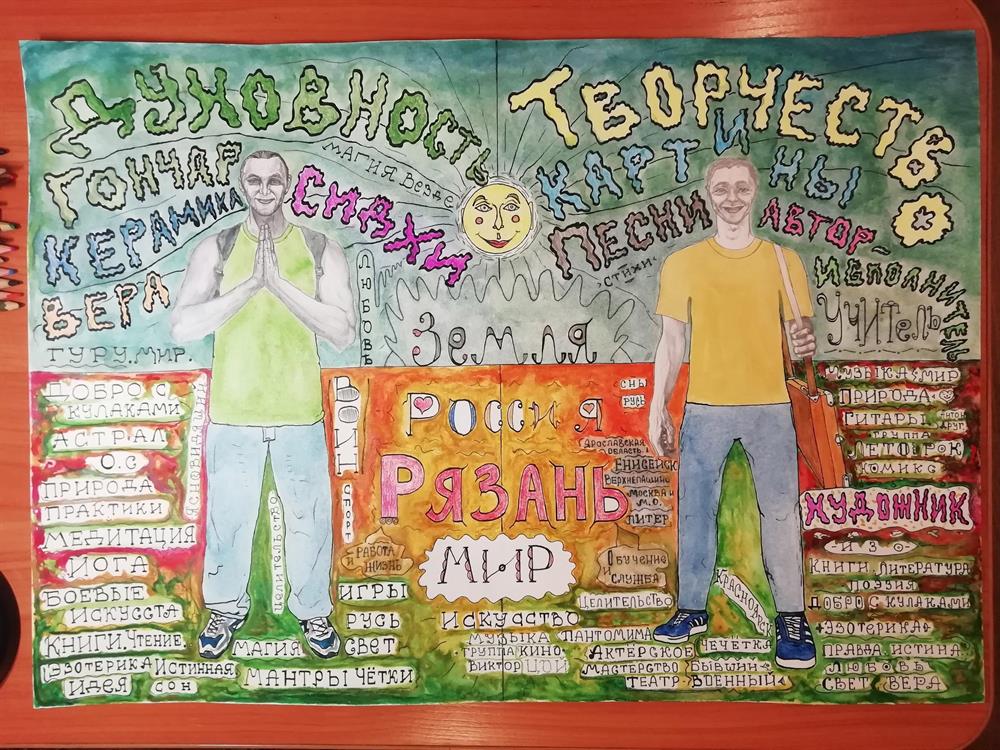 ДУХОВНОСТЬ
ТВОРЧЕСТВО
МАГИЯ ВЕЗДЕ
ГОНЧАР
КЕРАМИКА
ВЕРА
ГУРУ. МИР.
СИДХИ
КАРТИНЫ
ПЕСНИ
СТИХИ
АВТОР-
ИСПОЛНИТЕЛЬ
УЧИТЕЛЬ
ЛЮБОВЬ
Земля
ДОБРО С
КУЛАКАМИ
АСТРАЛ
О.С
ПРИРОДА
ПРАКТИКИ
МЕДИТАЦИЯ
ЙОГА
БОЕВЫЕ
ИСКУССТА
КНИГИ. ЧТЕНИЕ
ЭЗОТЕРИКА
ИДЕЯ
ИСТИННАЯ
СОН
ЯСНОВИДЯЩИЙ
ЦЕЛИТЕЛЬСТВО
МАГИЯ
СВЕТ
МАНТРЫ ЧЁТКИ
ВОИН
СПОРТ
РАБОТА
И
ЖИЗНЬ
ИГРЫ
РУСЬ
Россия
РЯЗАНЬ
МИР
ИСКУССТВО
МУЗЫКА
ГРУППА КИНО
ВИКТОР ЦОЙ
ПАНТОМИМА
АКТЕРСКОЕ
МАСТЕРСТВО
ТЕАТР
ЧЕЧЁТКА
БЫВШИЙ
ВОЕННЫЙ
СНЫ
РУСЬ
ЯРОСЛАВСКАЯ
ОБЛАСТЬ
ЕНИСЕЙСК
ВЕРХНЕПАШИНО
МОСКВА И
М.О.
ПИТЕР
ОБУЧЕНИЕ
И
СЛУЖБА
ЦЕЛИТЕЛЬСТВО
КРАСНОЯРСК
МУЗЫКА МИР
ПРИРОДА
ГИТАРЫ
АНТОН
ДРУГ
ГРУППА
ЛЕТОРОК
КОМИКС
ХУДОЖНИК
ИЗО
КНИГИ. ЛИТЕРАТУРА
ПОЭЗИЯ
ДОБРО С КУЛАКАМИ
ЭЗОТЕРИКА
ПРАВДА. ИСТИНА.
ЛЮБОВЬ
СВЕТ ВЕРА